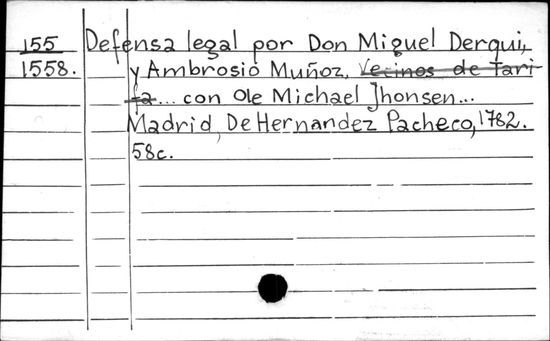 155 Defensa legal por Don Miguel Derqui,
1558. y Ambrosio Muñoz, Vecinos de Tari
fa... con Ole Michael Jhonsen...
Madrid, De Hernandez Pacheco, 1782.
58c.